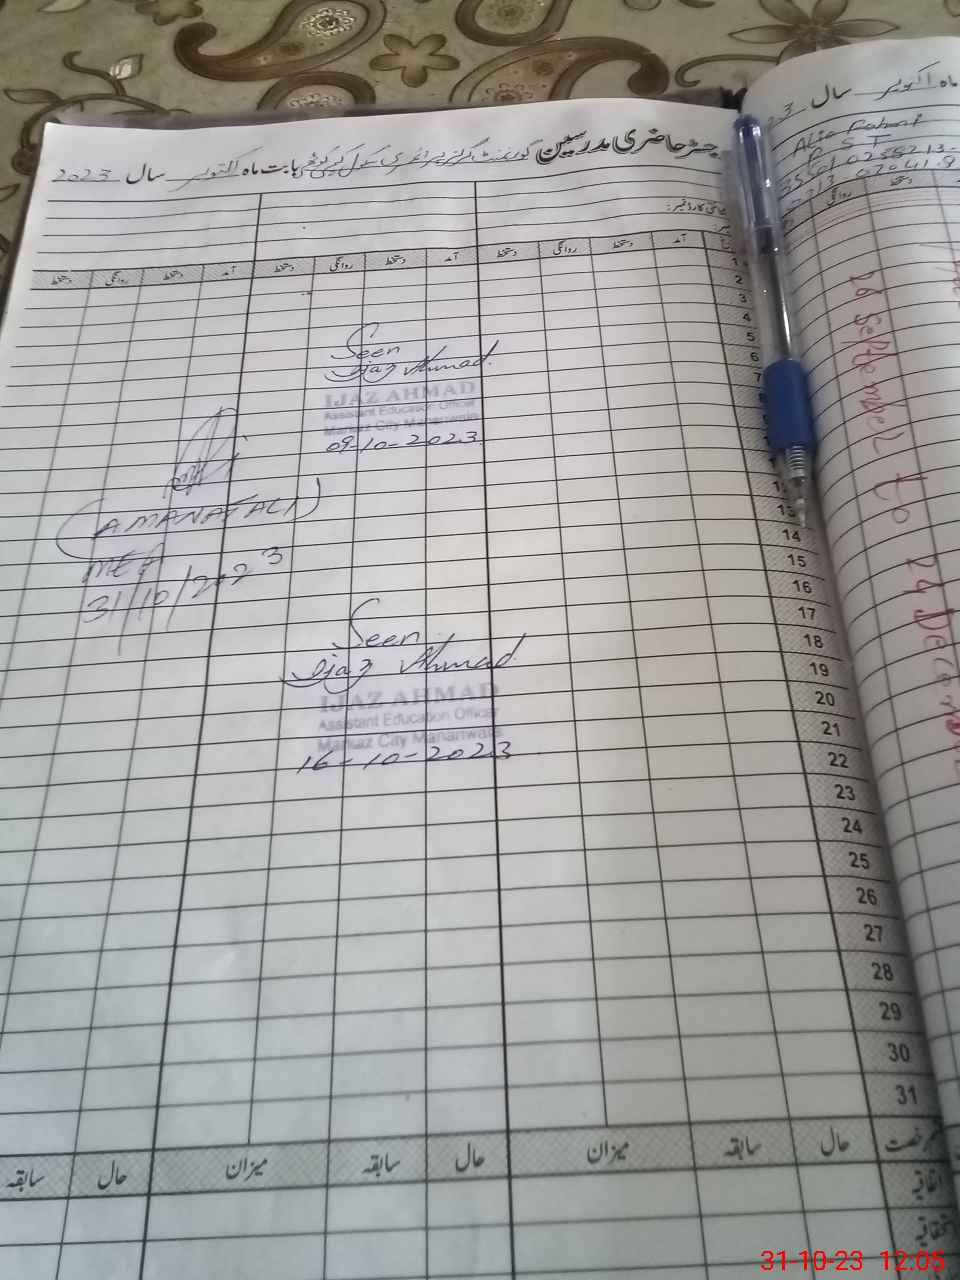 رجسٹر حاضری مدرسین گورنمنٹ گرلز پرائمری سکول بابت ماہ اکتوبر سال 2023
آمد دستخط روانگی دستخط آمد دستخط روانگی دستخط آمد دستخط روانگی دستخط
1
2
3
4
5
6
7
8
Seen
Ijaz Ahmad.
IJAZ AHMAD
Assistant Education Officer
Markaz City Mananwala
09-10-2023
(AMANAT ALI)
MEA
31/10/2023
13
14
15
16
17
18
19
20
21
22
23
24
25
26
27
28
29
30
31
Seen
Ijaz Ahmad
IJAZ AHMAD
Assistant Education Officer
Markaz City Mananwala
16-10-2023
حال سابقہ میزان حال سابقہ میزان حال سابقہ
اتفاقیہ
استحقاقیہ
ماہ اکتوبر سال
روانگی دستخط
26 September to 24 December
31-10-23 12:05